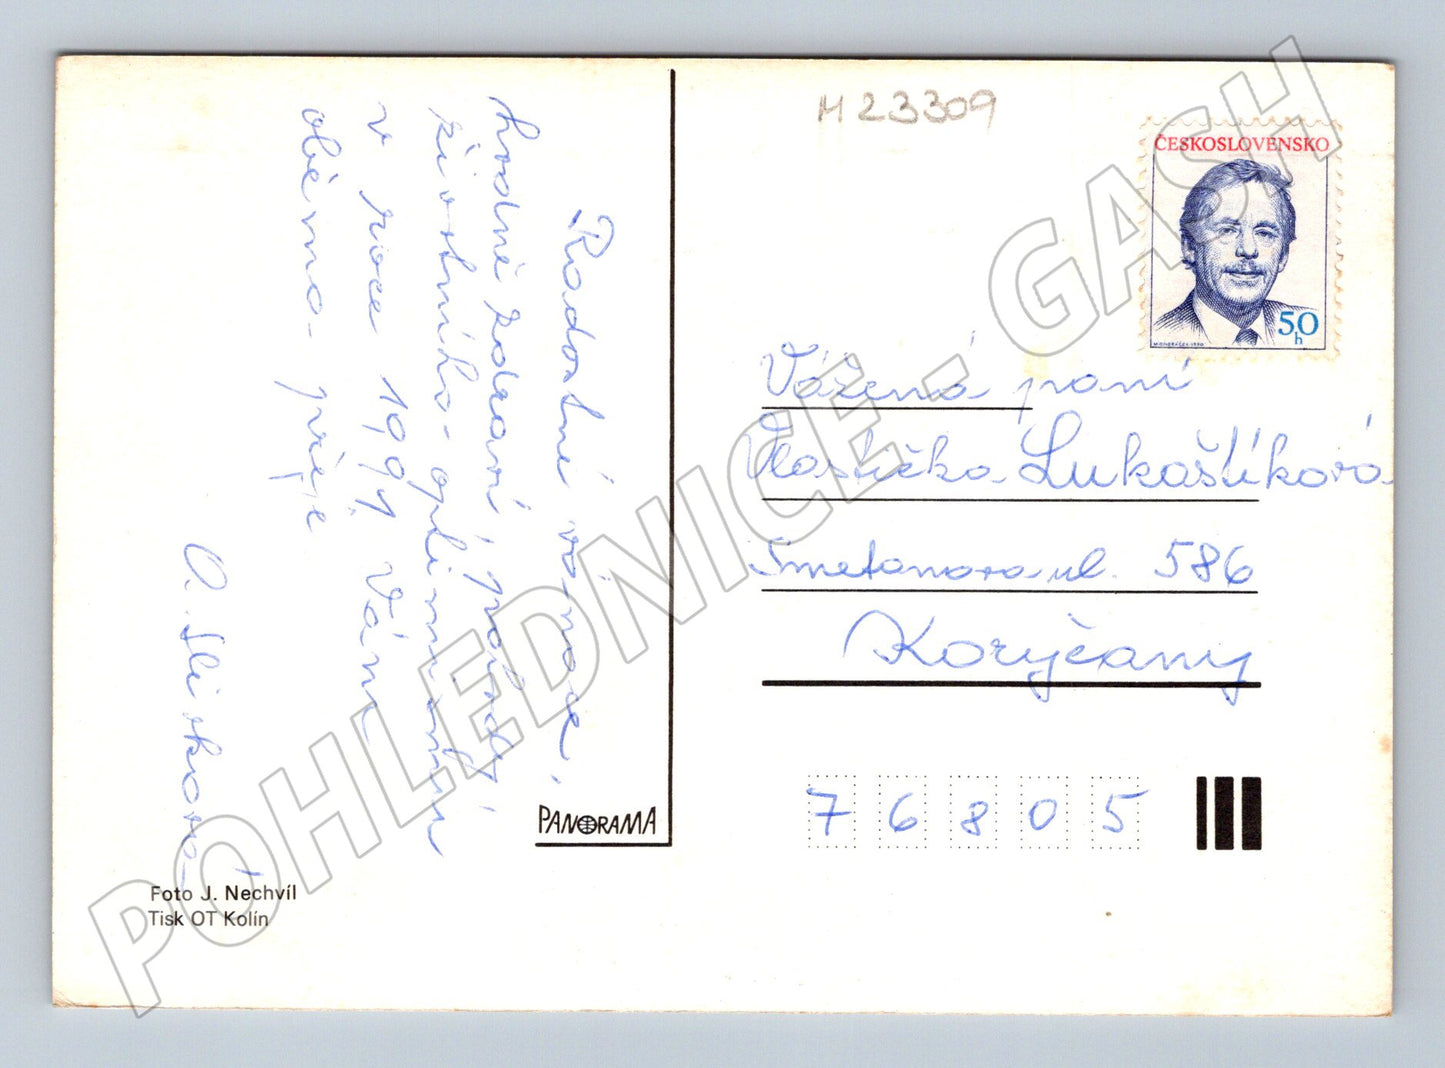 M 23309
ČESKOSLOVENSKO
50
h
M. ONDRÁČEK 1990
Radostné vánoce,
hodně zdraví, pohody,
životního optimismu
v roce 1991 Vám
oběma přeje
A. Slišková
Vážená paní
Vlastička Lukaštíková
Smetanova ul. 586
Koryčany
7 6 8 0 5
PANORAMA
Foto J. Nechvíl
Tisk OT Kolín
POHLEDNICE - GASH